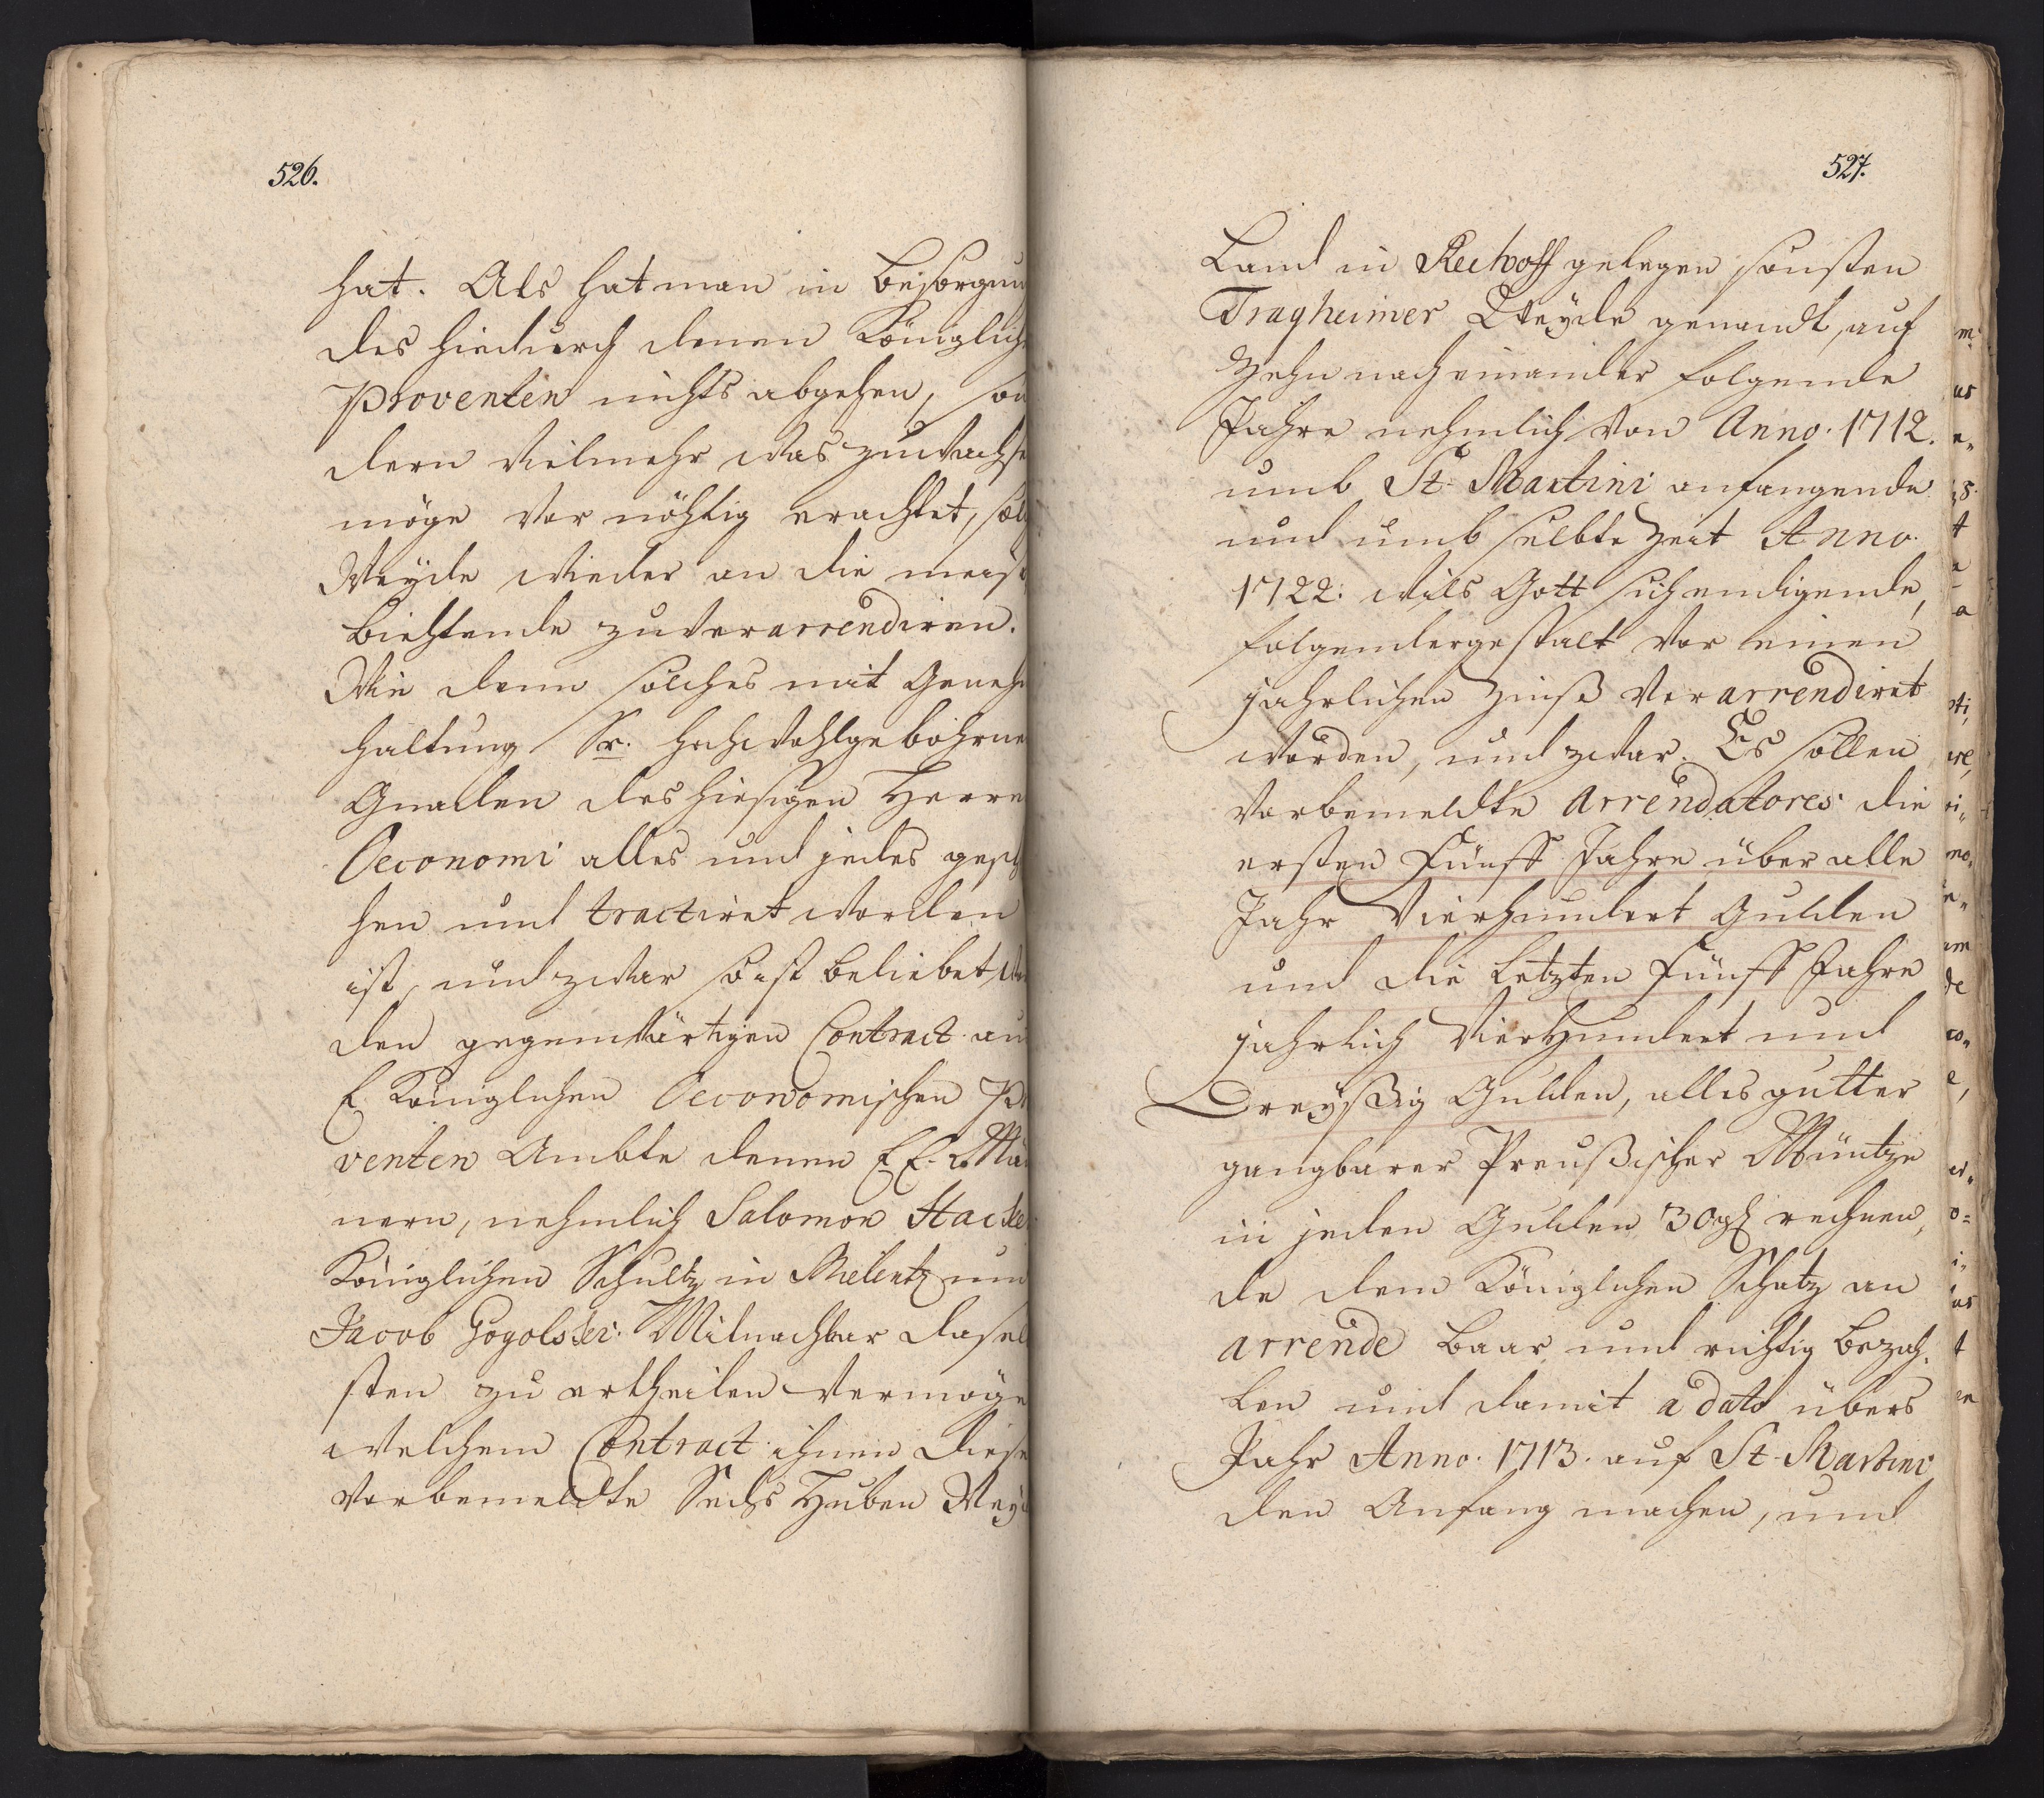 526.
hat. Als hat man in besorgun
des hiedurch denen Königlich
Proventen nichts abgehen, son
dern Vielmehr was zuwachse
möge vor nöhtig erachtet, sol
Weyde wieder an die meist
biehtende zuverarrendiren.
Wie denn solches mit Geneh
haltung Sr. hochwohlgebohrne
Gnaden des hiesigen Herrn
Oeconomi alles und jedes gesch
hen und tractiret worden
ist, und zwar so ist beliebet
den gegenwärtigen Contract au
E. Königlichen Oeconomischen Pr
venten Ambte denen E E. Män
nern, nehmlich Salomon Hacke
Königlichen Schultz in Mielentz un
Jacob Gogolski Mitnachbar dasel
sten zu ertheilen Vermöge
welchem Contract ihnen diese
Vorbemeldte Sechs Huben Wey
527.
Land in Rechoff gelegen, sonsten
Tragheimer Weyde genandt, auf
Zehn nach einander folgende
Jahre nehmlich von Anno. 1712.
umb St. Martini anfangende
und umb selbte Zeit Anno.
1722. wils Gott sich endigende,
folgendergestalt vor einen
jahrlichen Zinß Verarrendiret
worden, und zwar. Es sollen
Vorbemeldte Arrendatores die
ersten Fünff Jahre über alle
Jahr Vierhundert Gulden
und die Letzten Fünff Jahre
jahrlich VierHundert und
Dreyßig Gulden, alles gutter
gangbarer Preußischer Müntze
in jeden Gulden 30 gl rechnen,
de dem Königlichen Schatz an
arrende baar und richtig bezah,
len und damit a dato übers
Jahr Anno. 1713. auf St. Martini
den Anfang machen, und